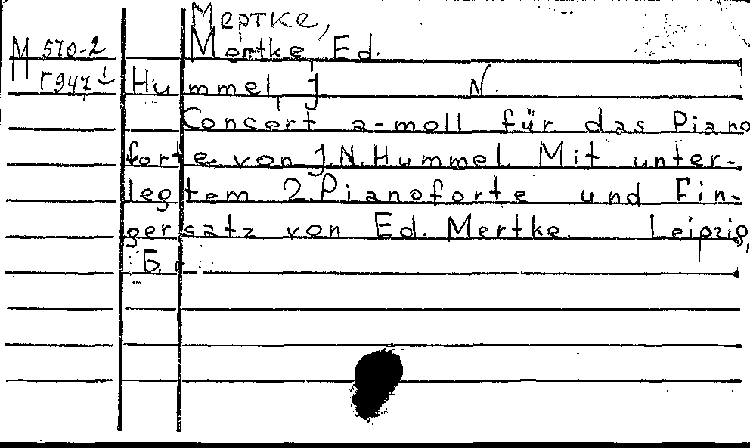 Мертке,
Mertke, Ed.
М 570-2
Г 947
Hummel, J. N.
Concert a-moll für das Piano
forte von J.N.Hummel. Mit unter-
legtem 2.Pianoforte und Fin-
gersatz von Ed. Mertke. Leipzig,
Б.